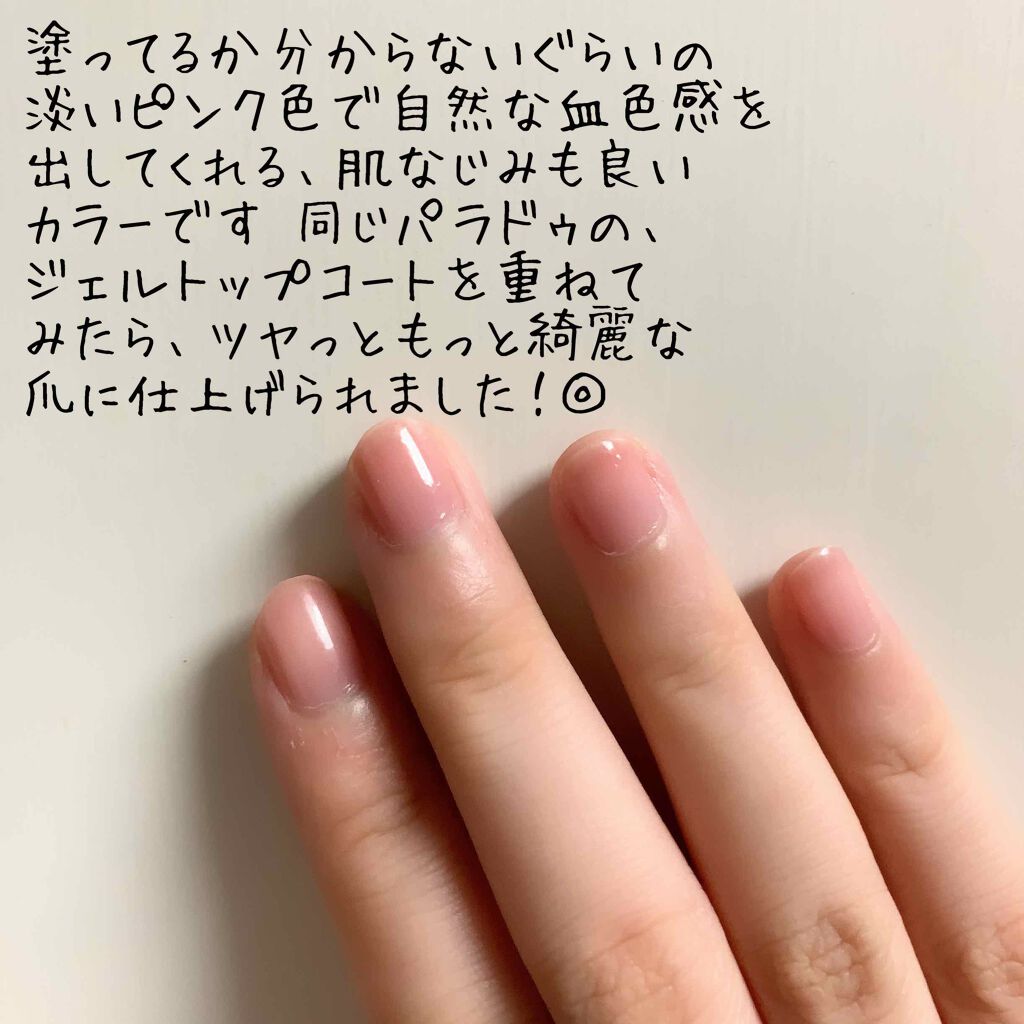 塗ってるか分からないぐらいの
淡いピンク色で自然な血色感を
出してくれる、肌なじみも良い
カラーです 同じパラドゥの、
ジェルトップコートを重ねて
みたら、ツヤっともっと綺麗な
爪に仕上げられました！◎